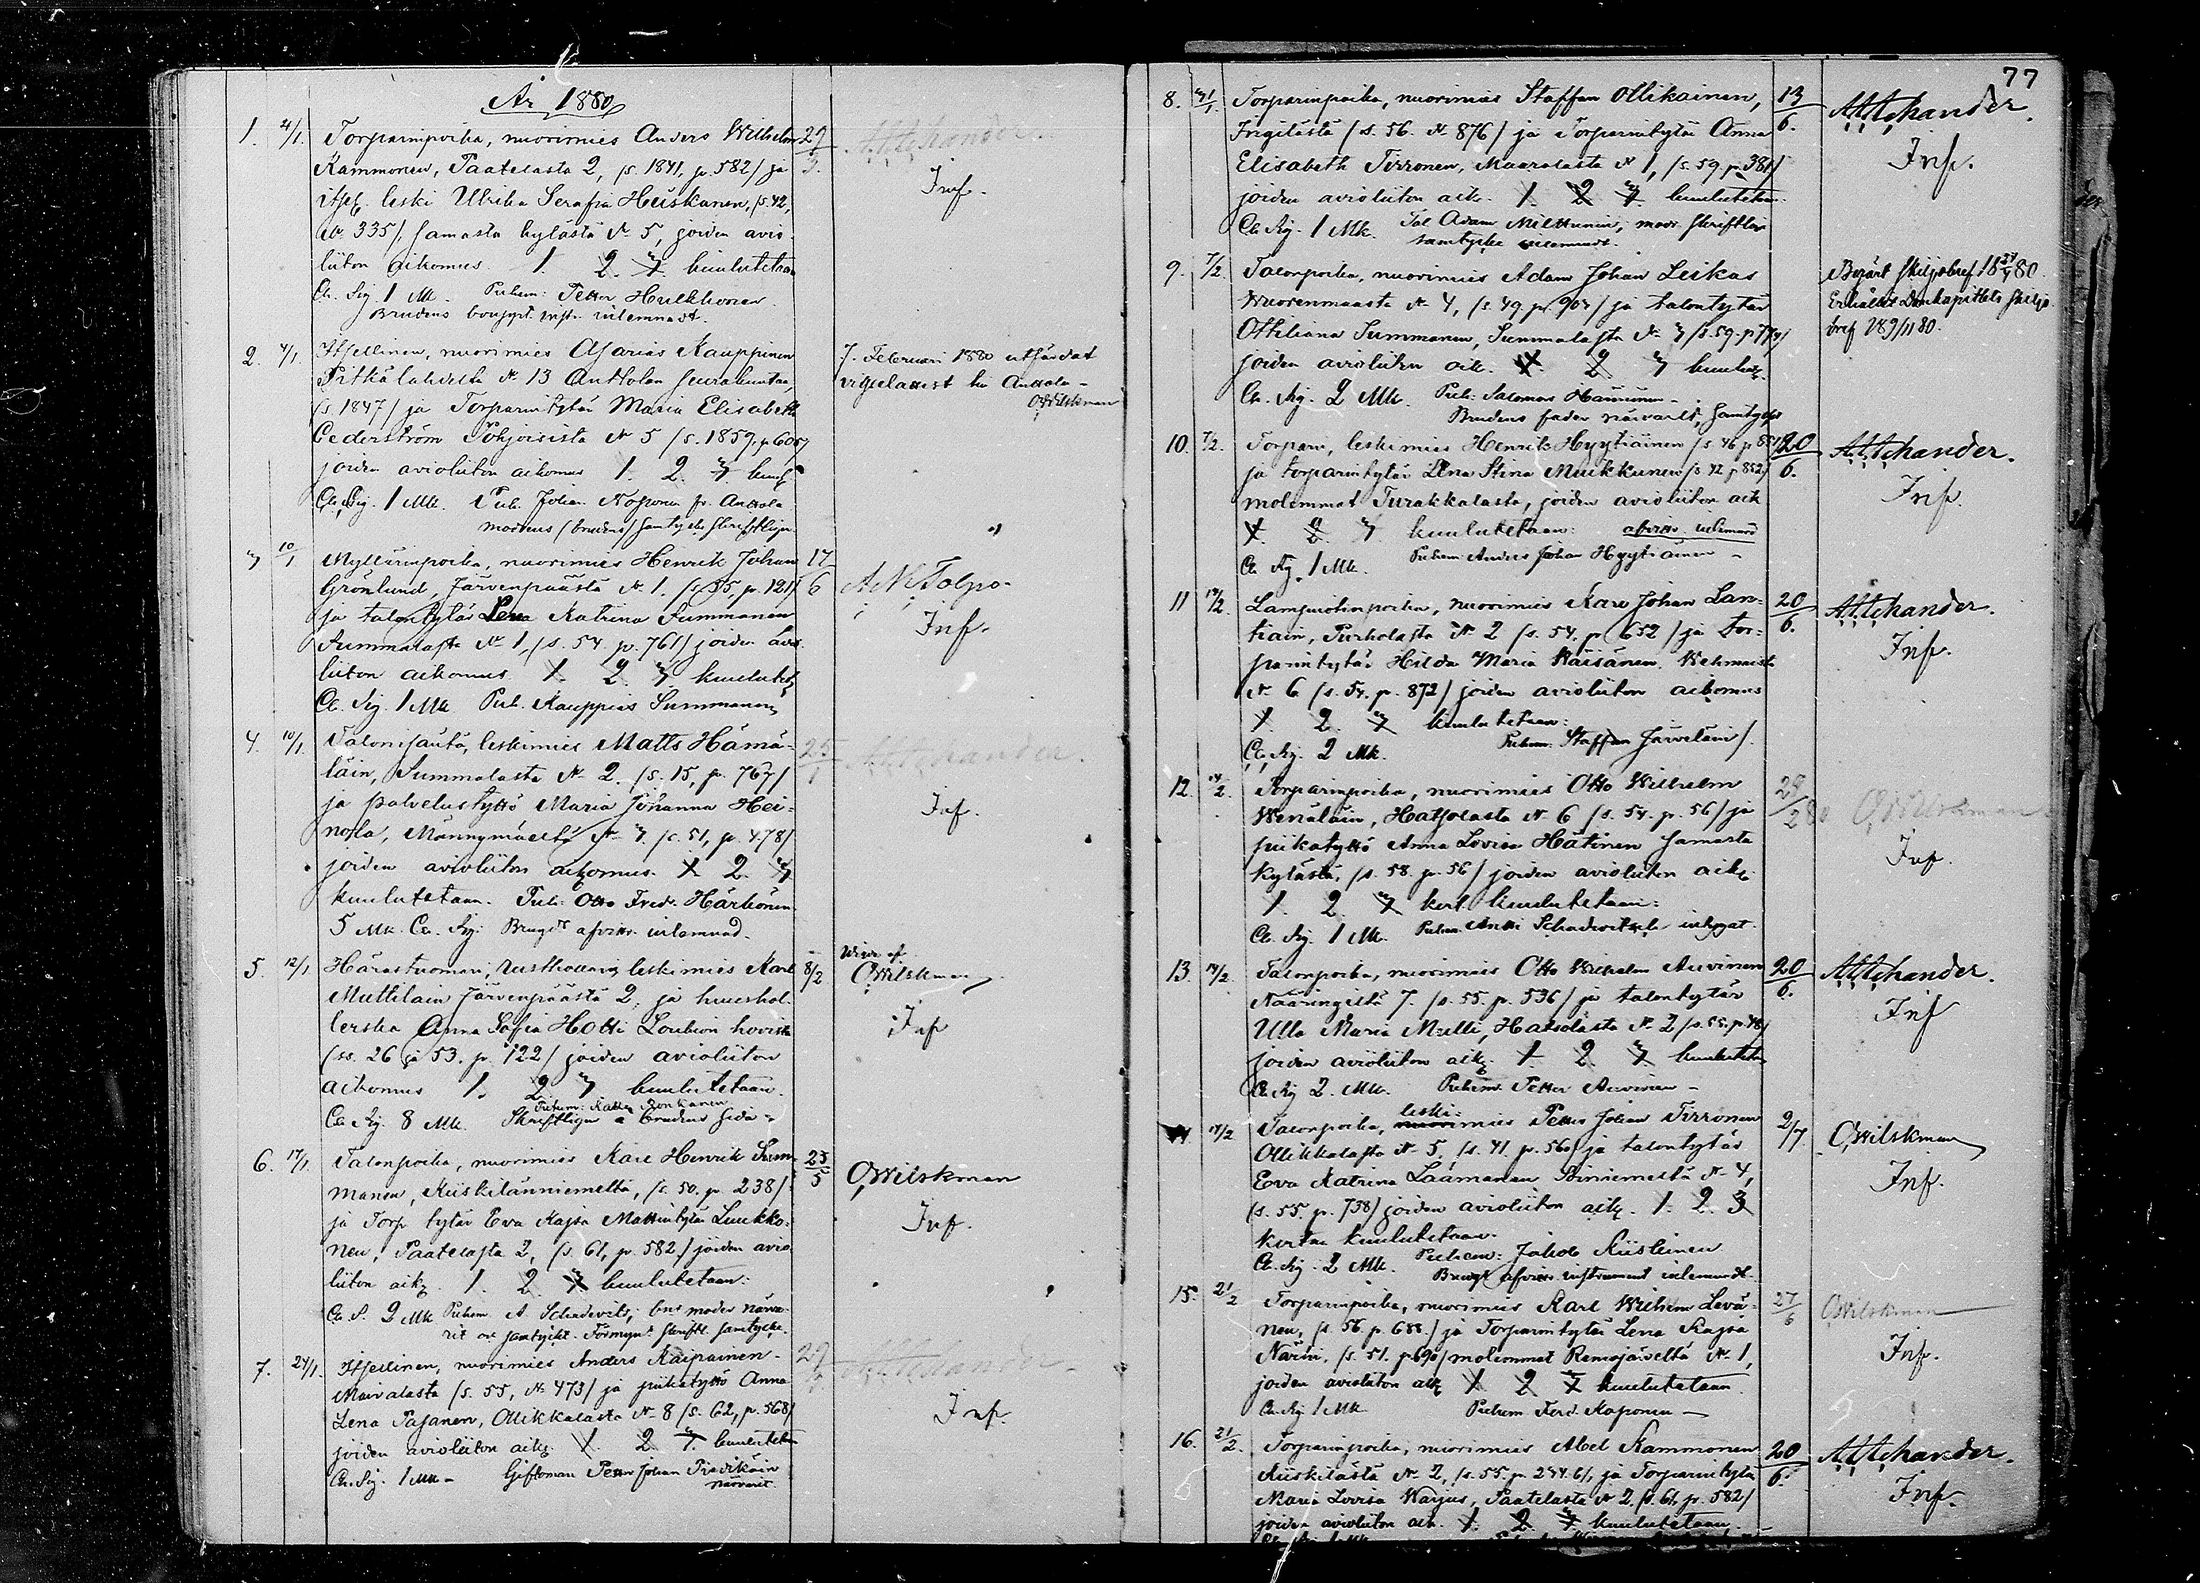 År 1880
1. 4/1. Torparinpoika, nuorimies Anders Wilhelm 29
Kammonen, Paatelasta 2, /s. 1841, p. 582/ ja
itsell. leski Ulrika Serafia Heiskanen, /s. 42,
No 335/, samasta kylästä No 5, joiden avio-
liiton aikomus 1. 2. 3 kuulutetaan
Ch. Sig. 1 Mk. Puhem: Petter Hulkkonen
Inf.
2. 4/1 Itsellinen, nuorimies Asarias Kauppinen
Pitkälahdelta No 13 Anttolan seurakuntaa,
/s. 1847/ ja Torparintytär Maria Elisabeth
Cederström Pohjoisista No 5 /s. 1859, p. 605/
joiden avioliiton aikomus 1. 2. 3 kuul.
Ch. Sig. 1 Mk. Puh. Johan Noponen fr. Anttola
modrens /brudens/ samtycke skriftligen
7. Februari 1880 utfärdat
vigselattest till Anttola -
OWilskman
3 10/1 Myllärinpoika, nuorimies Henrik Johan 17/6
Grönlund, Järvenpäästä No 1. /s. 55, p. 121/
ja talontytär Lena Katrina Summanen
Summalasta No 1, /s. 54. p. 761/ joiden avio-
liiton aikomus 1 2 3 kuulutet.
Ch. Sig. 1 Mk Puh. Kauppias Summanen
Inf.
4. 10/1 Talonisäntä, leskimies Matts Hämä-
läin, Summalasta No 2. /s. 15, p. 767/
ja palvelustyttö Maria Johanna Hei-
nola, Männymäeltä No 3 /s. 51, p. 478/
joiden avioliiton aikomus 1 2 3
kuulutetaan. Puh: Otto Fredr. Härkönen
5 Mk. Ch. Sig: Brudgs afvittr. inlemnad.
Inf.
5. 12/1 Härastuomari, rusthollari, leskimies Karl 8/2
Muttilain Järvenpäästä 2, ja huushol-
lerska Anna Sofia Hotti Loukion hovista
/ss. 26 ja 53. p. 122/ joiden avioliiton
aikomus 1. 2 3 kuulutetaan.
Ch. Sig. 8 Mk. Skriftligen a brudens sida
OWilskman
Inf
6. 17/1 Talonpoika, nuorimies Karl Henrik Sum- 23/5
manen, Kiiskilänniemeltä, /s. 50. p. 238/
ja Torp tytär Eva Kajsa Mattintytär Luukko-
nen, Paatelasta 2, /s. 61, p. 582/ joiden avio
liiton aik. 1. 2 3 kuulutetaan:
Ch. S. 2 Mk Puhem A. Schadevits, bns moder närva-
rit och samtyckt. Förmynd. skriftl. samtycke.
OWilskman
Inf.
7. 24/1. Itsellinen, nuorimies Anders Kaipainen
Maivalasta /s. 55, No 473/ ja piikatyttö Anna
Lena Pasanen, Ollikkalasta No 8 /s. 62, p. 568/
joiden avioliiton aik. 1. 2 3. kuulutetaan
Ch. Sig. 1 Mk - Giftoman Petter Johan
närvarit
Inf.
77
8. Torparinpoika, nuorimies Staffan Ollikainen, 13/6.
/s. 56. No 876/ ja Torparintytär Anna
Elisabeth Tirronen, Maaralasta No 1, /s. 59 p. 381/
joiden avioliiton aik. 1. 2 3 kuulutetaan.
Ch. Sig. 1 Mk. Tal Adam Miettinen, modr. skriftliga
samtycke inlemnadt.
Inf.
9. 7/2. Talonpoika, nuorimies Adam Johan Leikas
Wuorenmaasta No 4, /s. 49 p. 903/ ja talontytär
Othiliana Summanen, Summalasta No 3 /s. 59. p. 773/
joiden avioliiton aik. 1 2 3 kuulut.
Ch. Sig. 2 Mk. Puh. Salomon Hänninen -
Brudens fader närvarit, samtyckt
Begärt skiljobref
Erhållit Domkapitlets skiljo-
bref 189/11 80.
10. 7/2. Torpari, leskimies Henrik Hyytiäinen /s. 46 p. 20/6.
ja torparintytär Lena Stina Muikkunen /s. 42 p. 852/
molemmat Turakkalasta, joiden avioliiton aik
1. 2 3 kuulutetaan: afvittr. inlemnad
Ch. Sig. 1 Mk. Puhem: Anders Johan Hyytiäinen -
Inf.
11 14/2. Lampuotinpoika, nuorimies Karl Johan Lan- 20/6.
tiain, Purholasta No 2 /s. 54. p. 652/ ja tor-
parintytär Hilda Maria Räisänen Wehmaista
No 6 /s. 54. p. 872/ joiden avioliiton aikomus
1. 2. 3 kuulutetaan:
Ch. Sig. 2 Mk. Puhem. Staffan Järveläin/.
Inf.
12. 14/2. Torparinpoika, nuorimies Otto Wilhelm
Wenäläin, Hatsolasta No 6 /s. 54. p. 56/ ja
piikatyttö Anna Lovisa Hätinen samasta
kylästä, /s. 58. p. 56/ joiden avioliiton aik.
1. 2. 3 kert. kuulutetaan:
Ch. Sig. 1 Mk. Puhem. Antti Schadewitseh
Inf.
13. 14/2. Talonpoika, nuorimies Otto Wilhelm Auvinen 20/6.
Nääringiltä 7. /s. 55. p. 536/ ja talontytär
Ulla Maria Multi, Hatsolasta No 2 /s. 55. p. 48/
joiden avioliiton aik. 1. 2 3. kuulutetaan
Ch. Sig 2. Mk. Puhem. Petter Auvinen -
Inf
14/2. Talonpoika, leski:mies Petter Johan Tirronen 2/7
Ollikkalasta No 5, /s. 41. p. 560/ ja talontytär
Eva Katrina Laamanen Soiniemeltä No 4,
/s. 55. p. 738/ joiden avioliiton aik. 1. 2. 3
kertaa kuulutetaan.
Ch. Sig: 2 Mk. Puhem: Jakob Riistinen
Brudgs afvittr. instrument inlemnadt.
OWilskman
Inf.
15. 21/2 Torparinpoika, nuorimies Karl Wilhelm Levä- 27/6
nen, /s. 56. p. 688./ ja Torparintytär Lena Kajsa
Närvi, /s. 51. p. 690/ molemmat Remojäveltä No 1,
joiden avioliiton aik 1 2 3 kuulutetaan.
Ch. Sig 1 Mk Puhem Ferd. Kaponen -
OWilskman
Inf.
16. 21/2. Torparinpoika, nuorimies Abel Kammonen 20/6.
Kiiskilästä No 2, /s. 55. p. 244.6/, ja Torparintytär
Maria Lovisa Warjus, Paatelasta No 2, /s. 61, p. 582/
joiden avioliiton aik. 1. 2 3 kuulutetaan.
Inf.